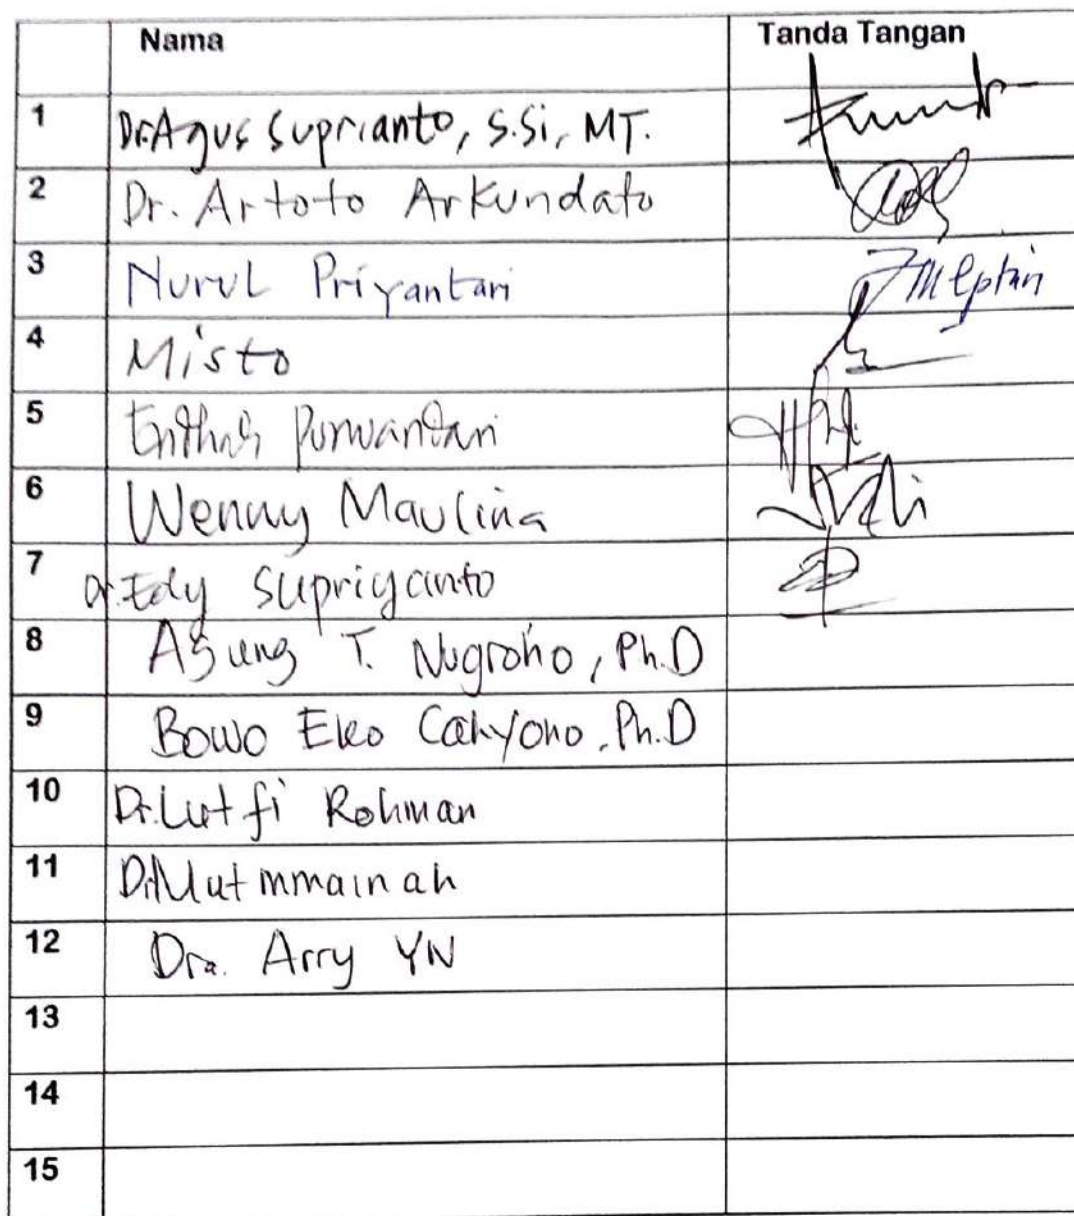 Nama Tanda Tangan
1 Dr. Agus Suprianto, S.Si, MT.
2 Dr. Artoto Arkundato
3 Nurul Priyantari
4 Misto
5 Purwandari
6 Wenny Maulina
7 Dr. Edy Supriyanto
8 Agung T. Nugroho, Ph.D
9 Bowo Eko Cahyono, Ph.D
10 Dr. Lutfi Rohman
11 Dr. Mutmmainah
12 Dra. Arry YN
13
14
15